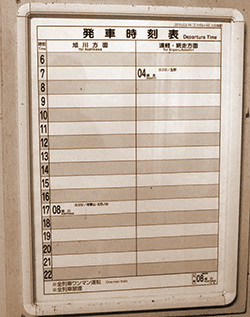 発車時刻表 Departure Time
時刻 Time
旭川方面
for Asahikawa
遠軽・網走方面
for Engaru, Abashiri
6
7
04
8
9
10
11
12
13
14
15
16
17 08
18
19
20
21
22
※全列車ワンマン運転
※全列車禁煙